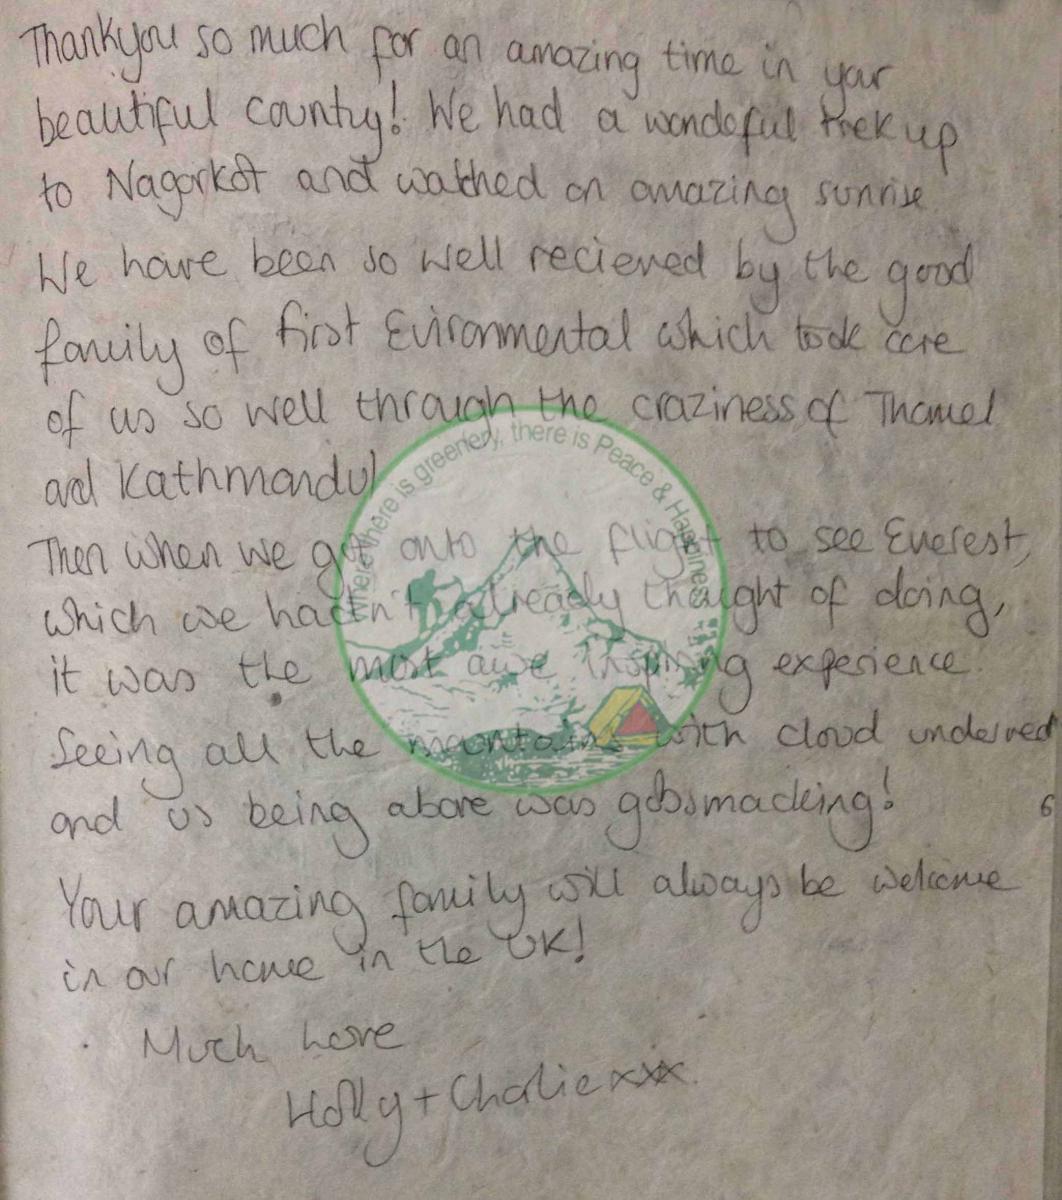 Thankyou so much for an amazing time in your
beautiful county! We had a wondeful trek up
to Nagarkot and watched an amazing sunrise
We have been so well recieved by the good
family of first Evironmental which took care
of us so well through the craziness of Thamel
and Kathmandu!
Then when we got onto the flight to see Everest,
which we hadn't already thought of doing,
it was the most awe inspiring experience.
Seeing all the mountains with cloud underned
and us being above was gobsmacking!
6
Your amazing family will always be welcome
in our home in the UK!
Much Love
Holly + Charlie xxx
Where there is greenery, there is Peace & Happiness